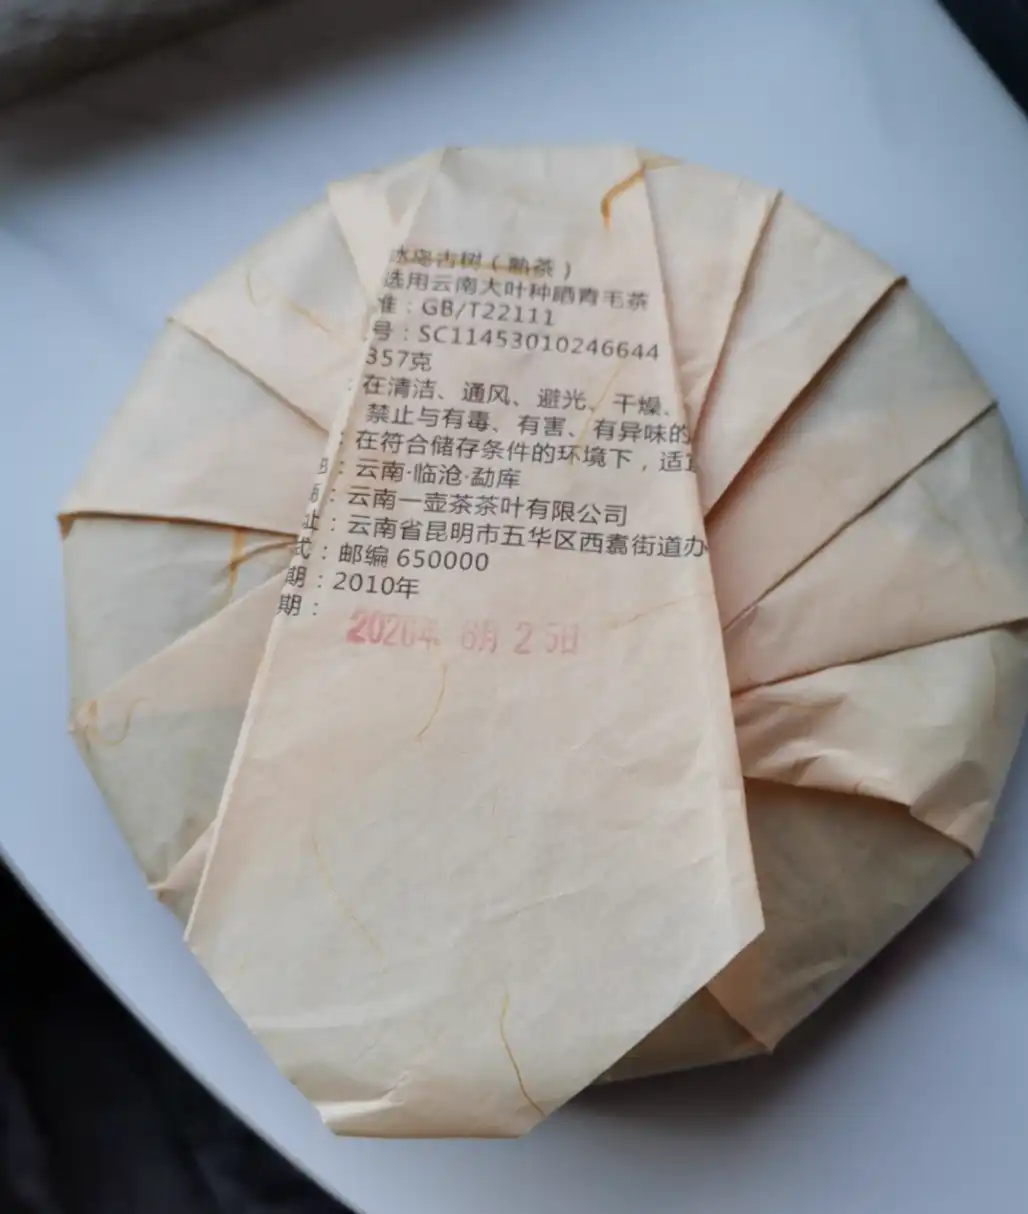 冰岛古树（熟茶）
选用云南大叶种晒青毛茶
准：GB/T22111
号：SC11453010246644
357克
：在清洁、通风、避光、干燥、
禁止与有毒、有害、有异味的
：在符合储存条件的环境下，适
：云南·临沧·勐库
：云南一壶茶茶叶有限公司
址：云南省昆明市五华区西翥街道办
式：邮编 650000
期：2010年
期：
2020年 6月 25日